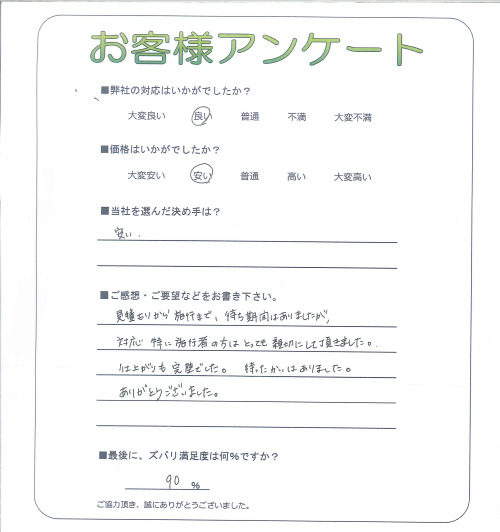 お客様アンケート
■弊社の対応はいかがでしたか？
大変良い 良い 普通 不満 大変不満
■価格はいかがでしたか？
大変安い 安い 普通 高い 大変高い
■当社を選んだ決め手は？
安い.
■ご感想・ご要望などをお書き下さい。
見積もりから施行まで、待ち期間はありましたが、
対応 特に施行者の方はとっても親切にして頂きました。
仕上がりも完璧でした。 待ったかいはありました。
ありがとうございました。
■最後に、ズバリ満足度は何%ですか？
90 %
ご協力頂き、誠にありがとうございました。